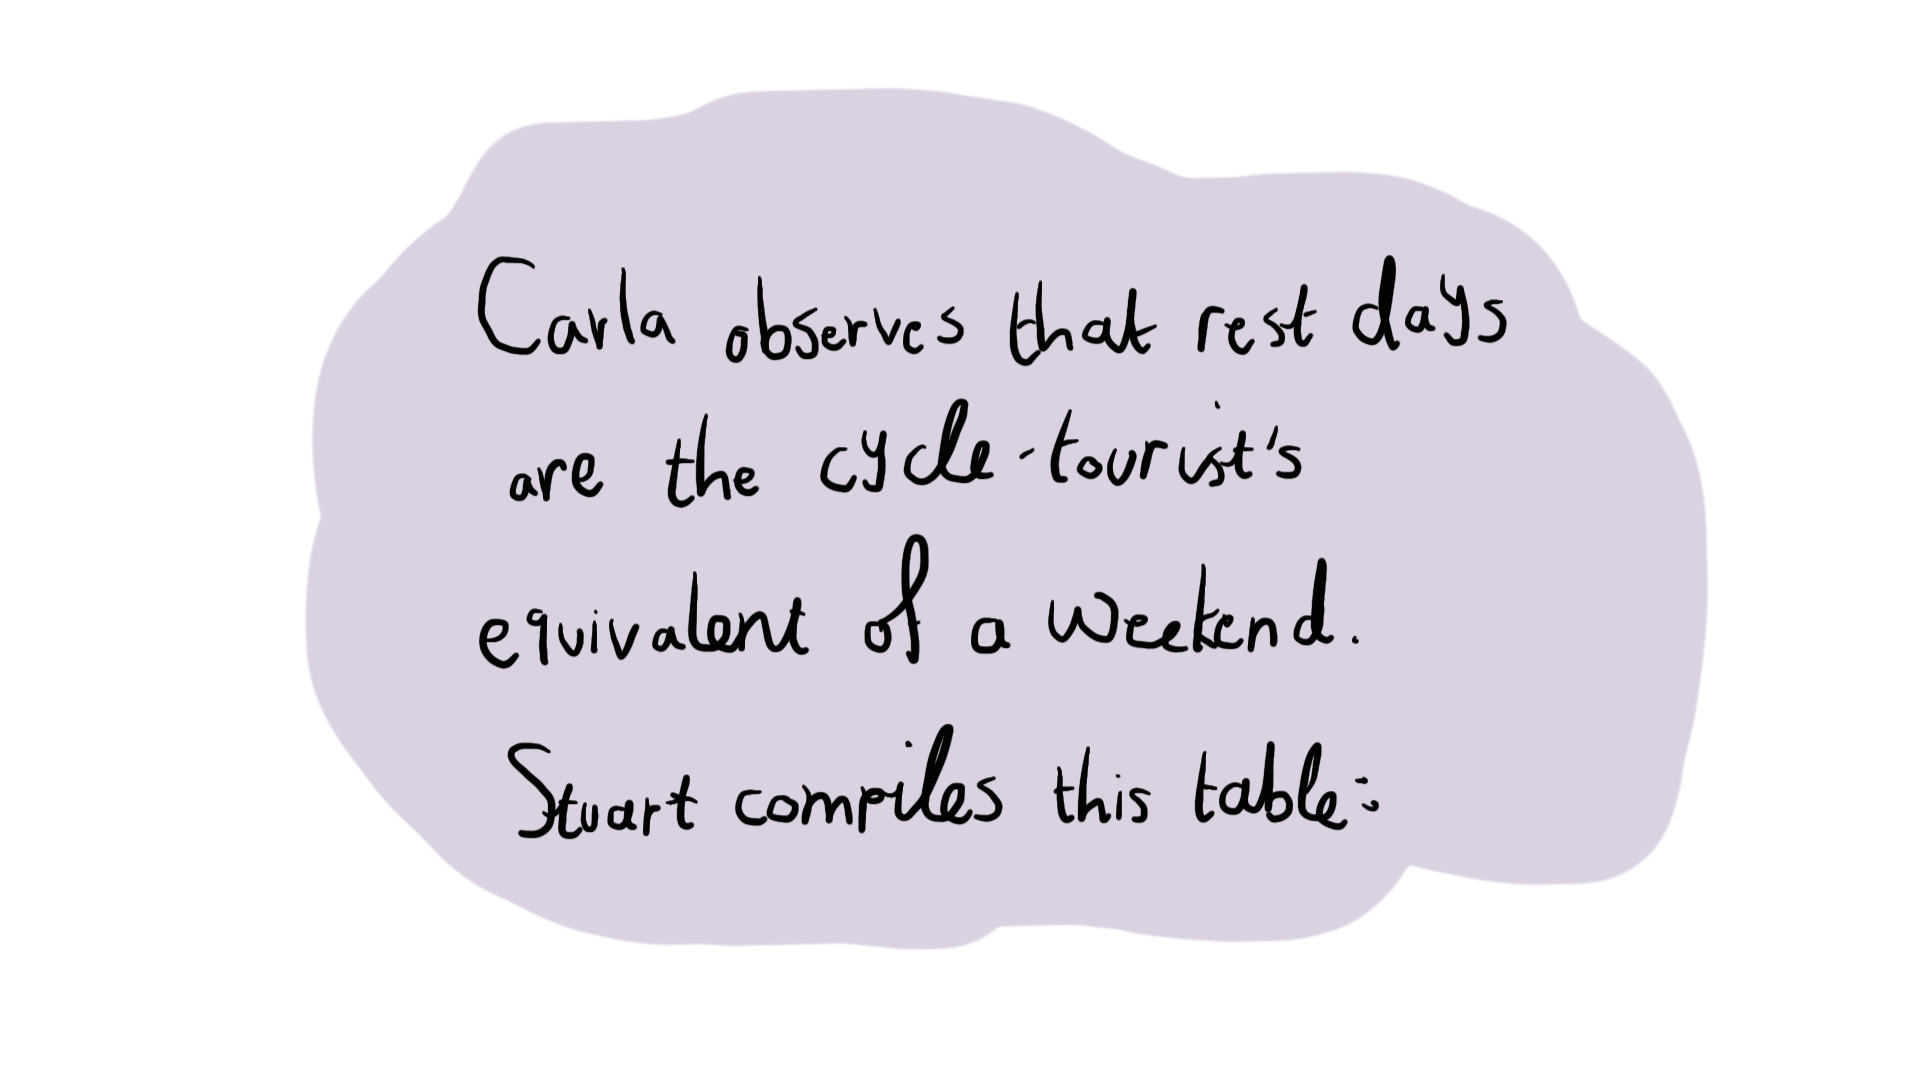 Carla observes that rest days
are the cycle-tourist's
equivalent of a weekend.
Stuart compiles this table: